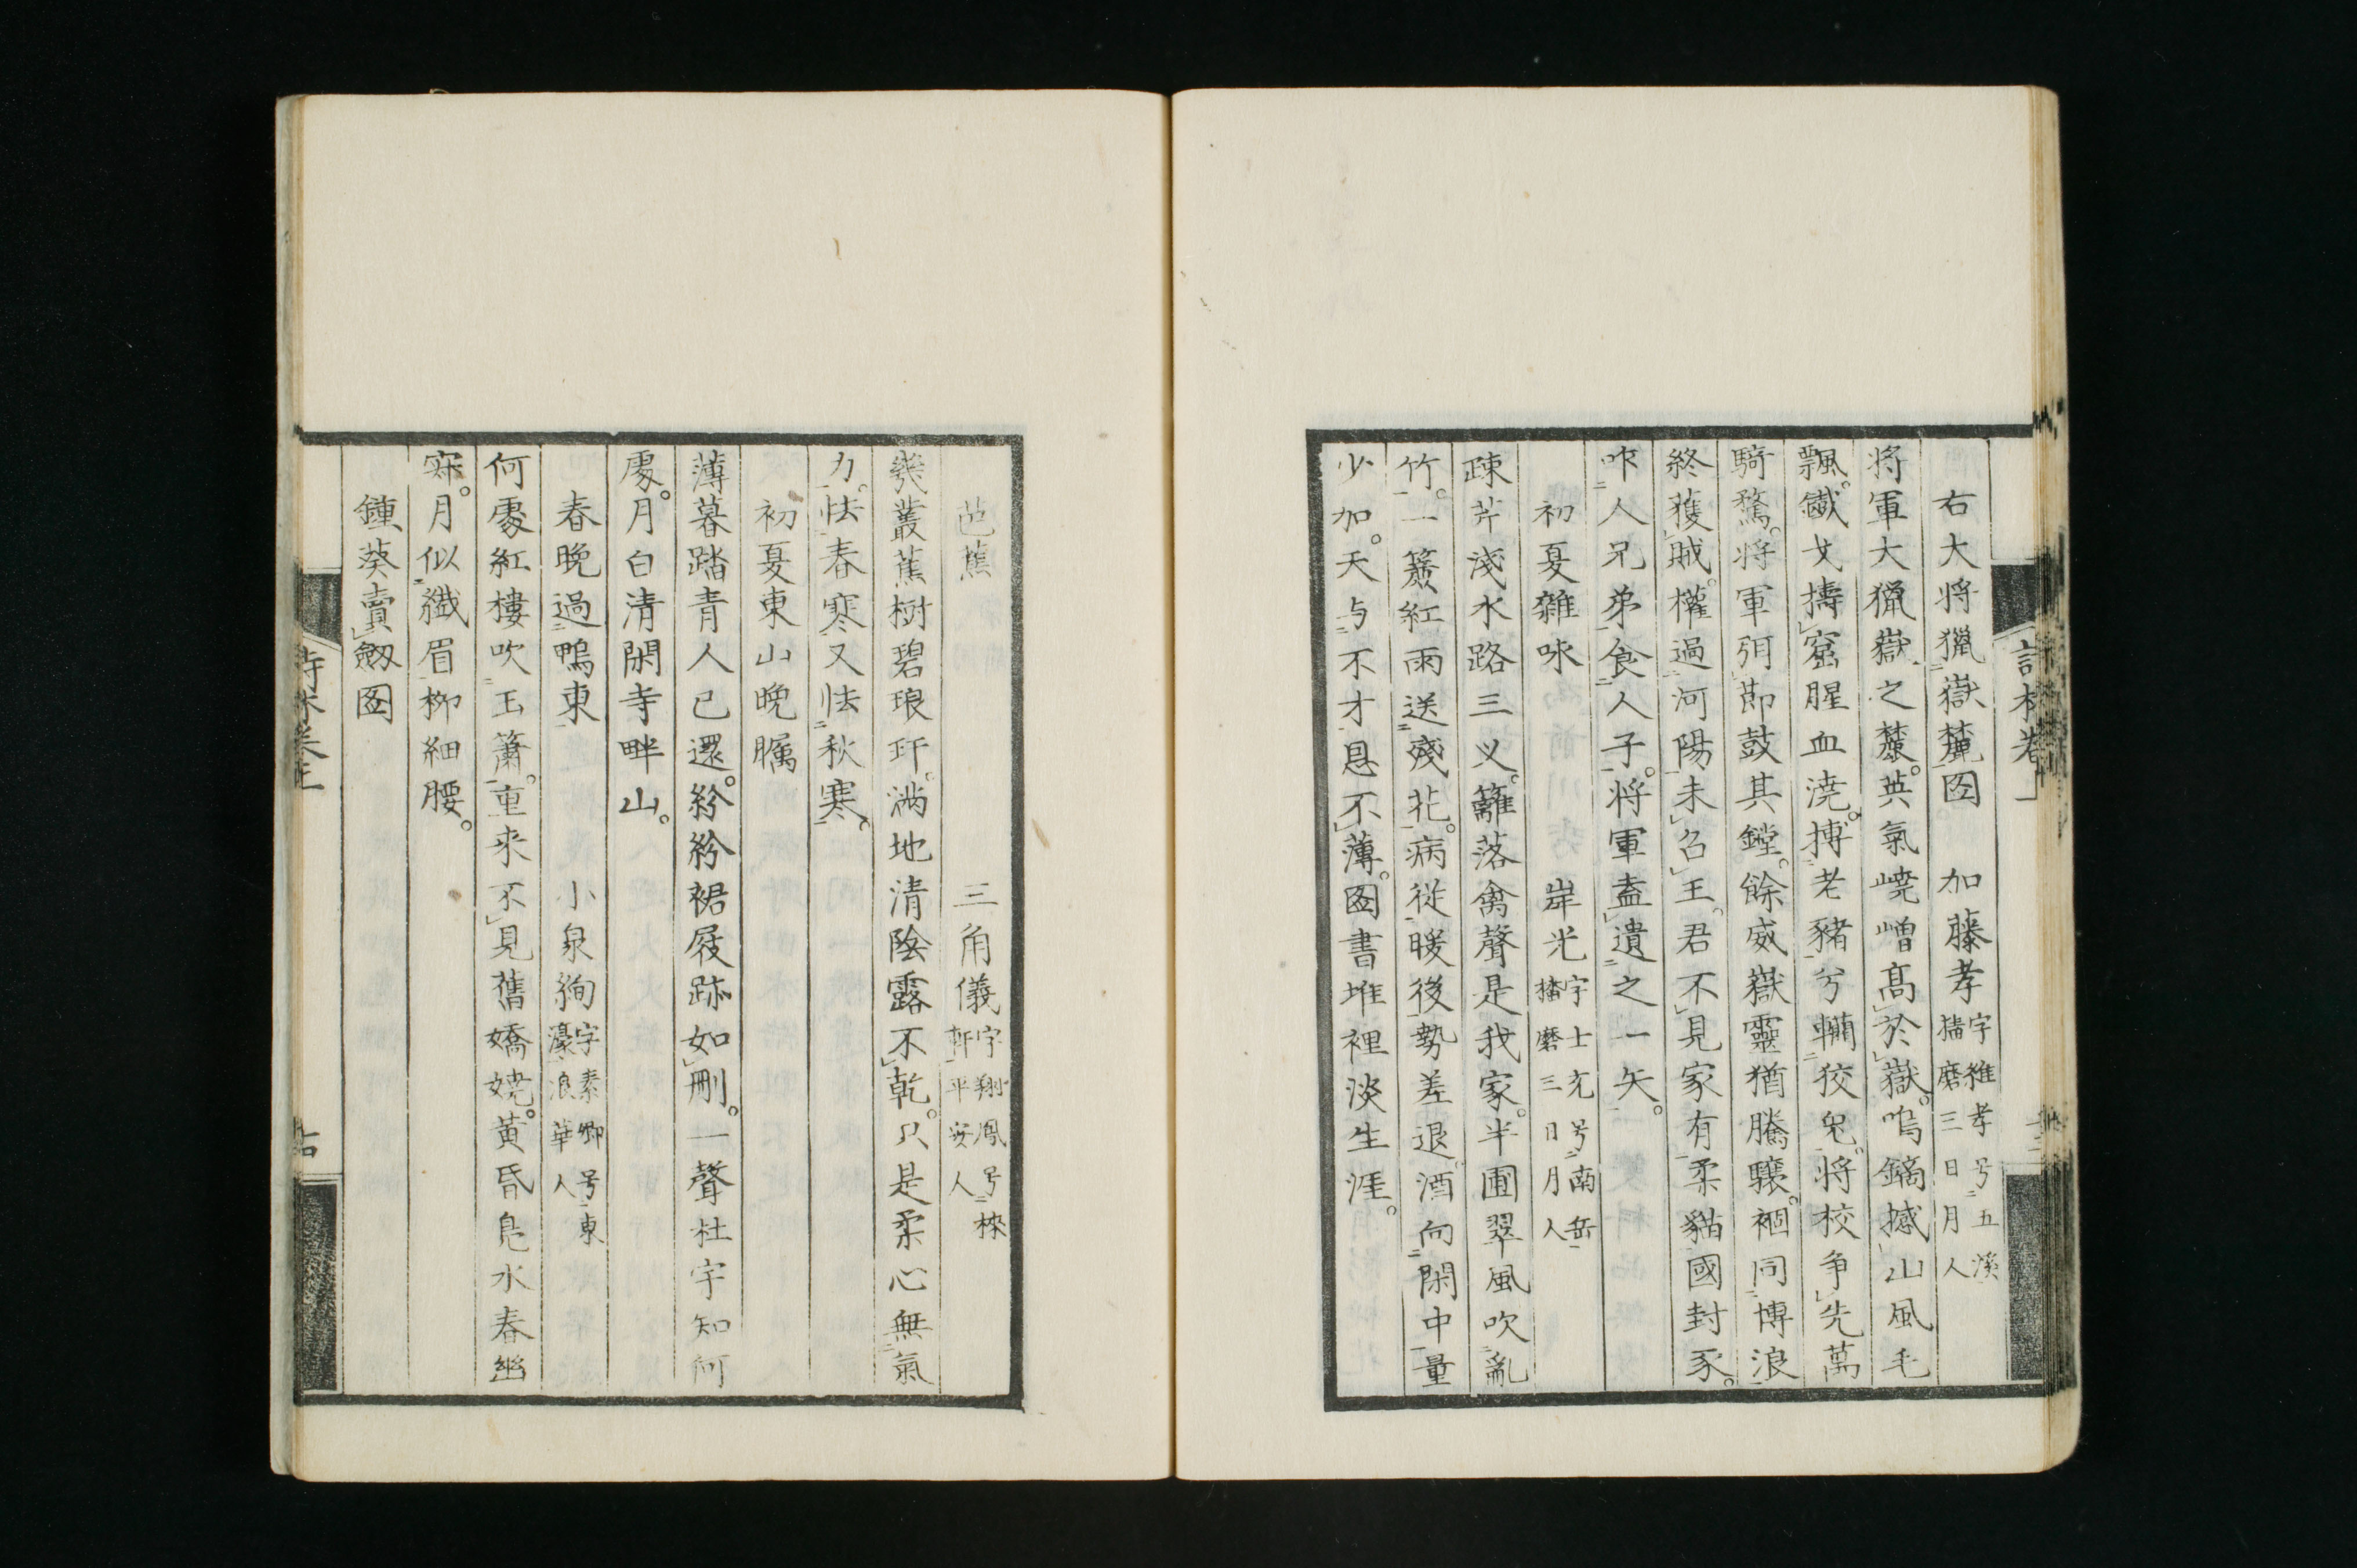 右大将獵嶽麓図　加藤孝字維孝号五溪播磨三日月人
将軍大獵嶽之麓。英氣嶢嶒高於嶽。鳴鏑撼山風毛
飄。鐵戈擣窟腥血澆。搏老豬兮轥狡兕。将校争先萬
騎騖。将軍弭莭鼓其鏜。餘威嶽靈猶騰驤。祻同博浪
終獲賊。權過河陽未召王。君不見家有柔貓國封豕。
咋人兄弟食人子。将軍盍遺之一矢。
初夏雜咏　岸光字士充号南岳播磨三日月人
疎芹淺水路三义。籬落禽聲是我家。半圃翠風吹亂
竹。一簾紅雨送殘花。病従暖後勢差退。酒向閑中量
少加。天与不才恩不薄。図書堆裡淡生涯。
芭蕉　三角儀字翔鳳号棶軒平安人
幾叢蕉樹碧琅玕。满地清陰露不乾。只是柔心無氣
力。怯春寒又怯秋寒。
初夏東山晚矚
薄暮踏青人已還。紛紛裙屐跡如刪。一聲杜宇知何
處。月白清閑寺畔山。
春晚過鴨東　小泉絢字素卿号東濠浪華人
何處紅樓吹玉簫。重來不見舊嬌嬈。黄昏鳧水春幽
寂。月似纖眉柳細腰。
鍾葵賣劔図